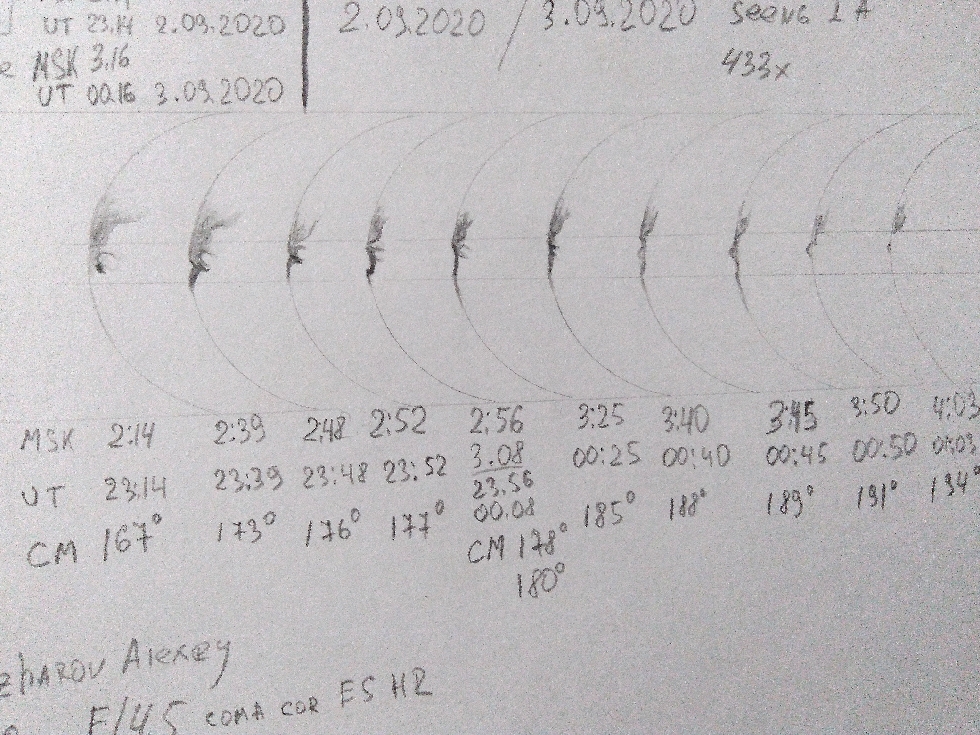 UT 23.14 2.09.2020
MSK 3.16
UT 00.16 3.09.2020
2.09.2020 / 3.09.2020 seeng
433x
MSK 2:14 2:39 2:48 2:52 2:56 3:25 3:40 3:45 3:50 4:03
3.08
UT 23.14 23:39 23:48 23:52 23.56 00:25 00:40 00:45 00:50 01:03
00.08
CM 167° 173° 176° 177° CM 178° 185° 188° 189° 191° 194°
180°
Alexey
F/4.5 COMA COR ES HR